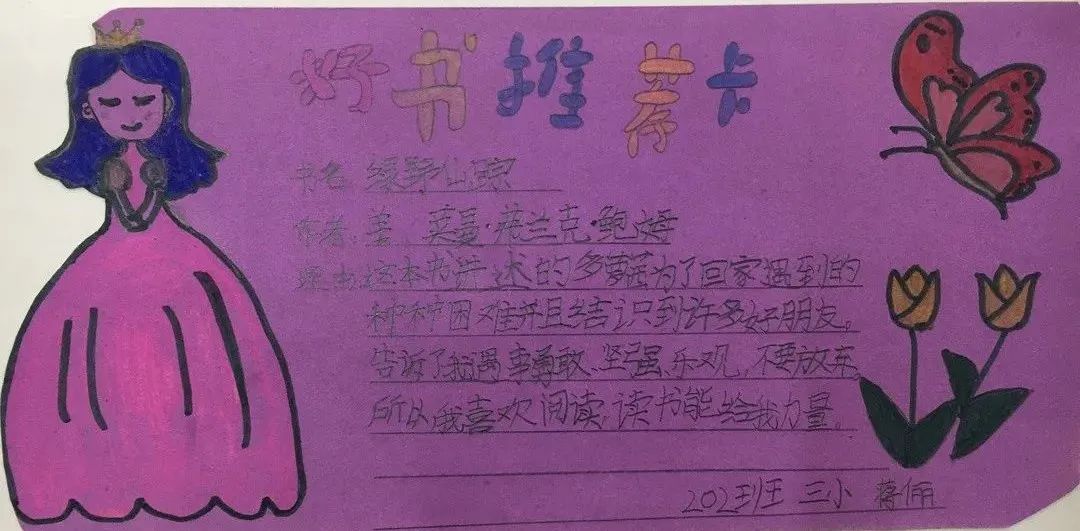 好书推荐卡
书名 绿野仙踪
作者:美、莱曼·弗兰克·鲍姆
理由:这本书讲述的多萝茜为了回家遇到的
种种困难并且结识到许多好朋友。
告诉了我遇事勇敢、坚强、乐观、不要放弃
所以我喜欢阅读,读书能给我力量。
202班 三小 蒋俪